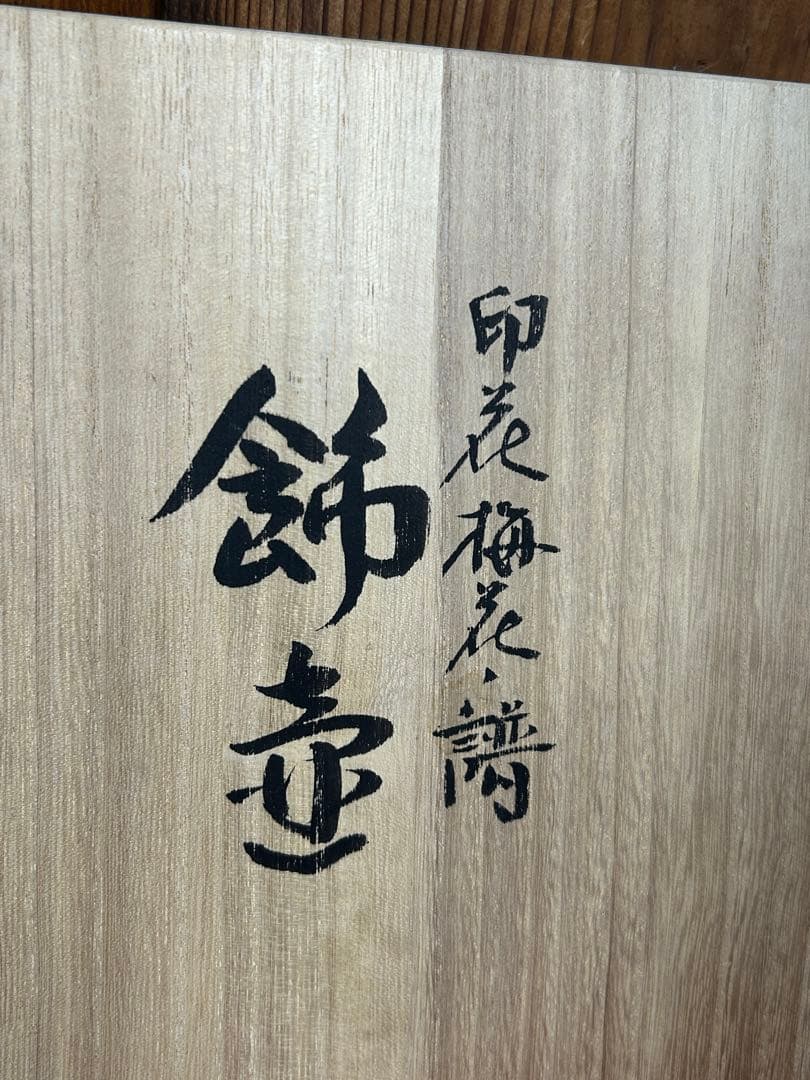 印花梅花譜
飾壺